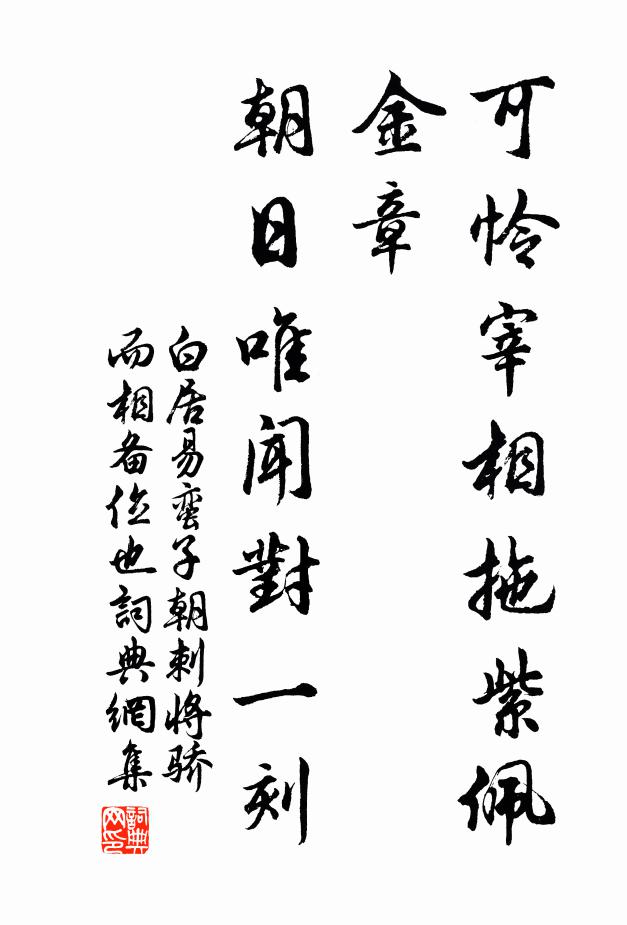 可怜宰相拖紫佩
金章
朝日唯闻對一刻
白居易蛮子朝刺将骄
而相备位也詞典網集
詞典
网印